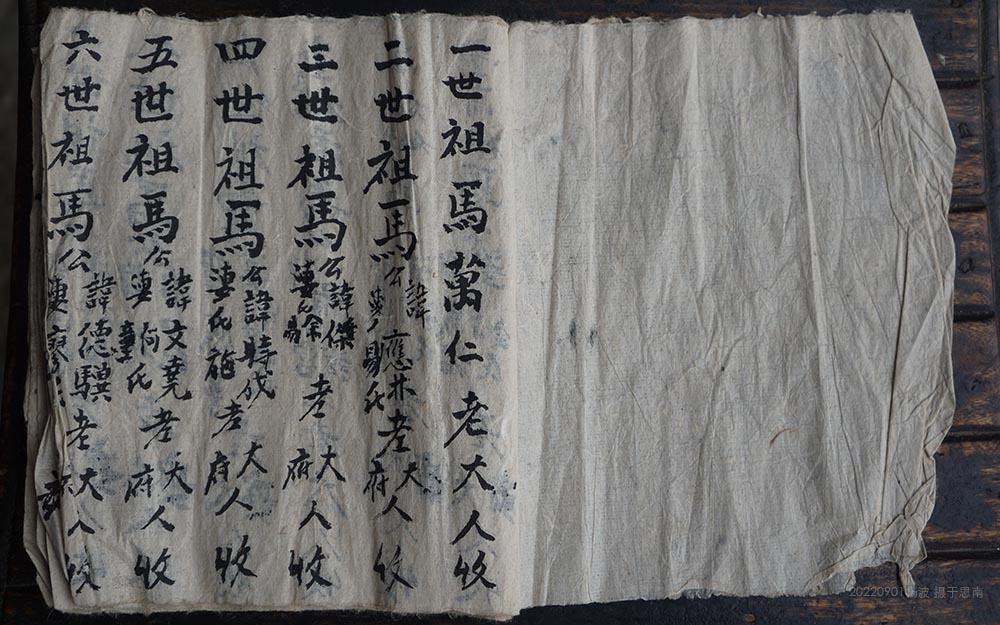 一世祖馬萬仁老大人收
二世祖馬公諱應 老大府人收
三世祖馬公諱傑 氏余 老大府人收
四世祖馬公諱時成 妻氏施 老大府人收
五世祖馬公諱文堯 妻 何氏 老大府人收
六世祖馬公諱德驥 妻廖 老大 人收
20220901 波 摄于思南